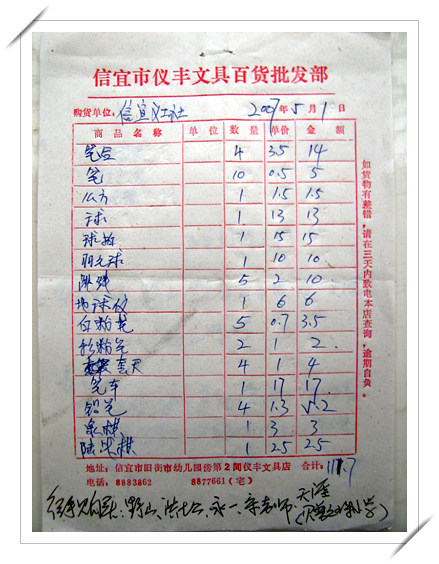 信宜市仪丰文具百货批发部
购货单位：信宜 2007年5月1日
商品名称 单位 数量 单价 金额
笔 4 3.5 14
笔 10 0.5 5
1 1.5 1.5
球 1 13 13
球拍 1 15 15
羽毛球 1 10 10
跳绳 5 2 10.
地球仪 1 6 6
白粉笔 5 0.7 3.5
彩粉笔 2 1 2.
套尺 4 1 4
笔 1 17 17.
铅笔 4 1.3 5.2
象棋 1 3 3
陆战棋 1 2.5 2.5
如货物有差错，请在三天内致电本店查询，逾期自负。
地址：信宜市旧街市幼儿园傍第2间仪丰文具店 合计：111.7
电话：8883862 8877661(宅)
野山、永一、天涯